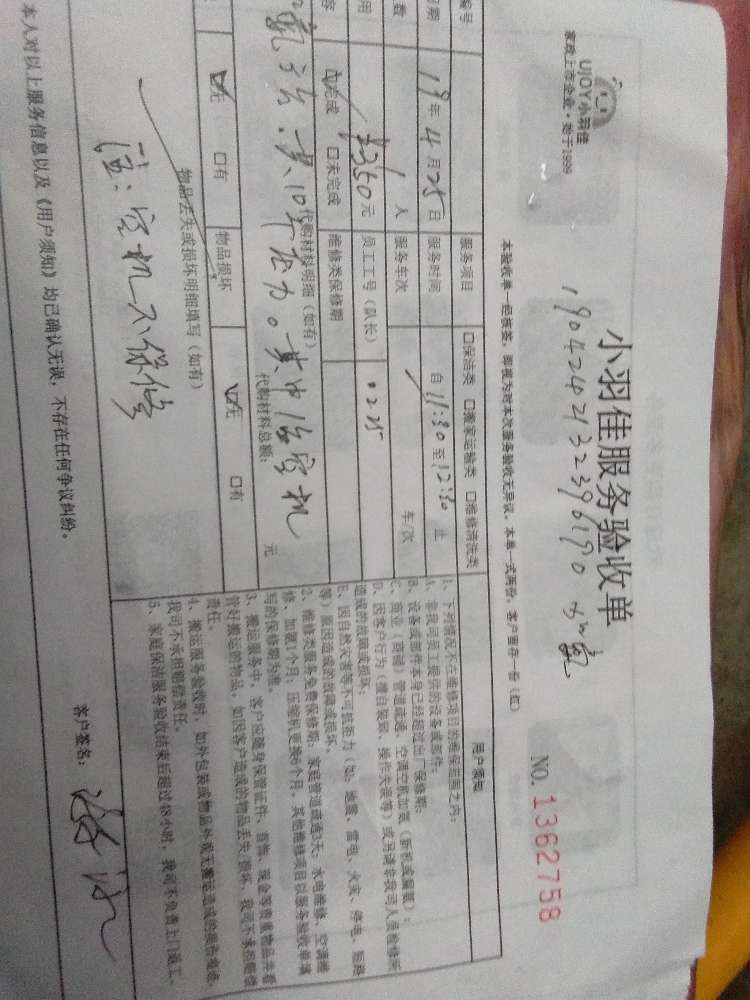 UJOY小羽佳
家政上市企业·始于1999
小羽佳服务验收单
190424213239619 0 加氟
NO. 1362758
本验收单一经核签，即视为对本次服务验收无异议。本单一式两份，客户留存一份（红）
编号
服务项目 口保洁类 口搬家运输类 口维修清洗类
日期 19年4月25日 服务时间 自11:30至12:30止
数 1人 服务车次 车/次
用 350元 员工工号（队长） 0225
容 完成 口未完成 维修类保修期
代购材料明细（如有）
氟 共10 压力。其中 空机
代购材料总额： 元
无 口有 物品损坏 无 口有
物品丢失或损坏明细填写（如有）
注：空机不保修
用户须知
1、下列情况不在维修项目的维保范围之内：
A、非我司员工提供的设备或部件；
B、设备或部件本身已经超过出厂保修期；
C、商业（商铺）管道疏通、空调空机加氟（新机或漏氟）；
D、因客户行为（擅自装卸、操作失误等）或另请非我司人员检修所
造成的故障或损坏。
E、因自然灾害等不可抗力（如：地震、雷电、火灾、停电、短路
等）原因造成的故障或损坏。
2、维修类服务免费保修期：家庭管道疏通3天；水电维修、空调维
修、加氟1个月，压缩机更换6个月，其他维修项目以服务验收单填
写的保修期为准。
3、搬运服务中，客户应随身保管证件、首饰、现金等贵重物品并看
管好搬运的物品，如因客户造成的物品丢失、损坏，我司不承担赔偿
责任。
4、搬运服务验收时，如外包装或物品外观无搬运造成的损伤痕迹，
我司不承担赔偿责任。
5、家庭保洁服务验收结束后超过48小时，我司不负责上门返工。
本人对以上服务信息以及《用户须知》均已确认无误，不存在任何争议纠纷。
客户签名：